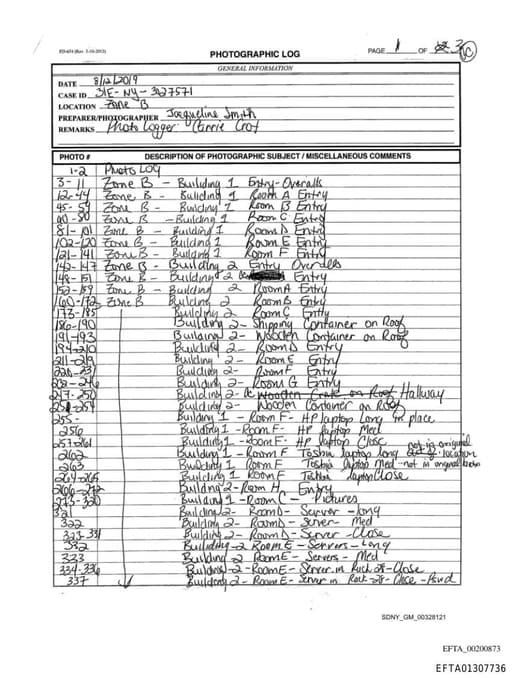 FD-674 (Rev. 5-10-2012)
PHOTOGRAPHIC LOG
PAGE 1 OF 3
GENERAL INFORMATION
DATE 8/12/2019
CASE ID 31E-NY-3027571
LOCATION Zone B
PREPARER/PHOTOGRAPHER Jacqueline Smith
REMARKS Photo Logger
PHOTO # DESCRIPTION OF PHOTOGRAPHIC SUBJECT / MISCELLANEOUS COMMENTS
1-2 Photo LOG
3-11 Zone B - Building 1 Entry-Overalls
12-44 Zone B - Building 1 Room A Entry
45-59 Zone B - Building 1 Room B Entry
60-80 Zone B - Building 1 Room C Entry
81-101 Zone B - Building 1 Room D Entry
102-120 Zone B - Building 1 Room E Entry
121-141 Zone B - Building 1 Room F Entry
142-147 Zone B - Building 2 Entry Overalls
148-151 Zone B - Building 2 Entry
152-159 Zone B - Building 2 Room A Entry
160-172 Zone B Building 2 Room B Entry
173-185 Building 2 Room C Entry
186-190 Building 2- Shipping Container on Roof
191-193 Building 2- Wooden Container on Roof
194-210 Building 2- Room D Entry
211-219 Building 2- Room E Entry
220-231 Building 2- Room F Entry
232-246 Building 2- Room G Entry
247-250 Building 2- Hallway
251-254 Building 2- Wooden Container on Roof
255- Building 1 - Room F- HP laptop Long in place
256 Building 1 - Room F- HP laptop Med
257-261 Building 1 - Room F- HP laptop Close
262 Building 1 - Room F Toshiba laptop long not in original location
263 Building 1 Room F Toshiba laptop Med -not in original
264-265 Building 1 Room F Toshiba laptop Close
266-272 Building 2-Room H Entry
273-320 Building 1 -Room C - Pictures
321 Building 2- Room D- Server -long
322 Building 2- Room D- Server- Med
323-331 Building 2- Room D- Server -Close
332 Building-2 Room E- Servers-Long
333 Building 2 Room E- Servers - Med
334-336 Building-2-Room E- Server in Rack Close
337 Building 2- Room E- Server in Rack Close
SDNY_GM_00328121
EFTA_00200873
EFTA01307736